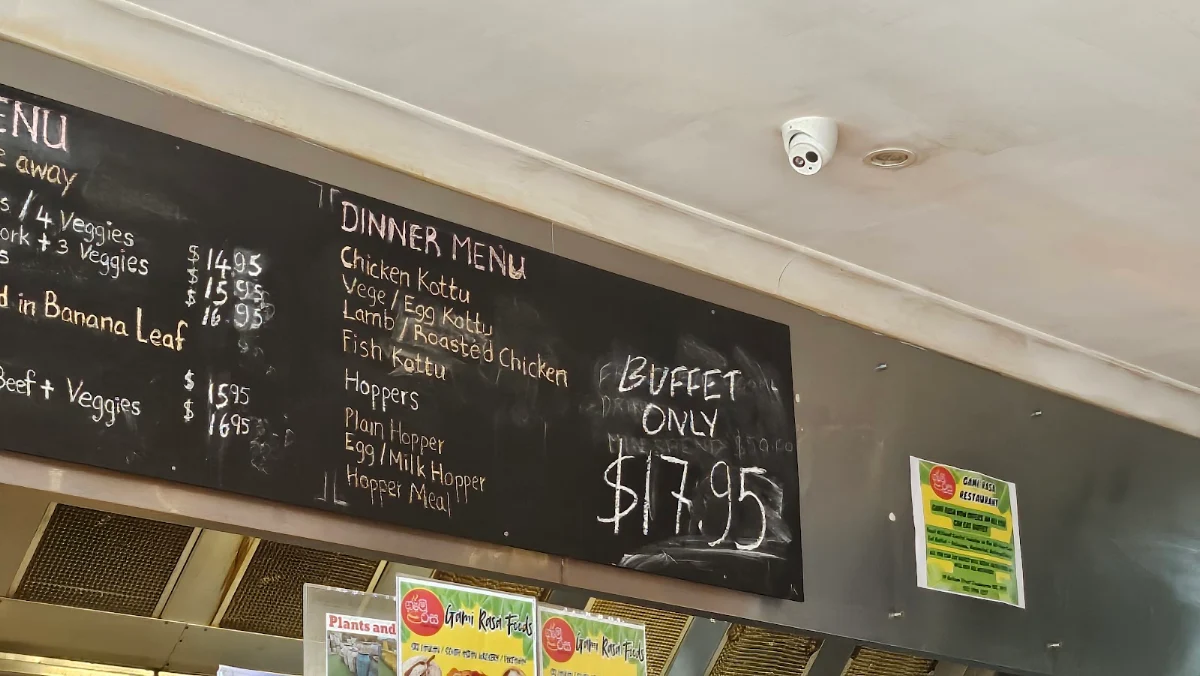 ENU
e away
s / 4 Veggies
ork + 3 Veggies
s
$ 14.95
$ 15.95
$ 16.95
d in Banana Leaf
$ 1595
Beef + Veggies
$ 1695
DINNER MENU
Chicken Kottu
Vege / Egg Kottu
Lamb / Roasted Chicken
Fish Kottu
Hoppers
Plain Hopper
Egg / Milk Hopper
Hopper Meal
BUFFET
ONLY
$17.95
GAMI RASA
RESTAURANT
CAN EAT BUFFET
Plants and
ගැමි රස
Gami Rasa Foods
ගැමි රස
Gami Rasa Foods